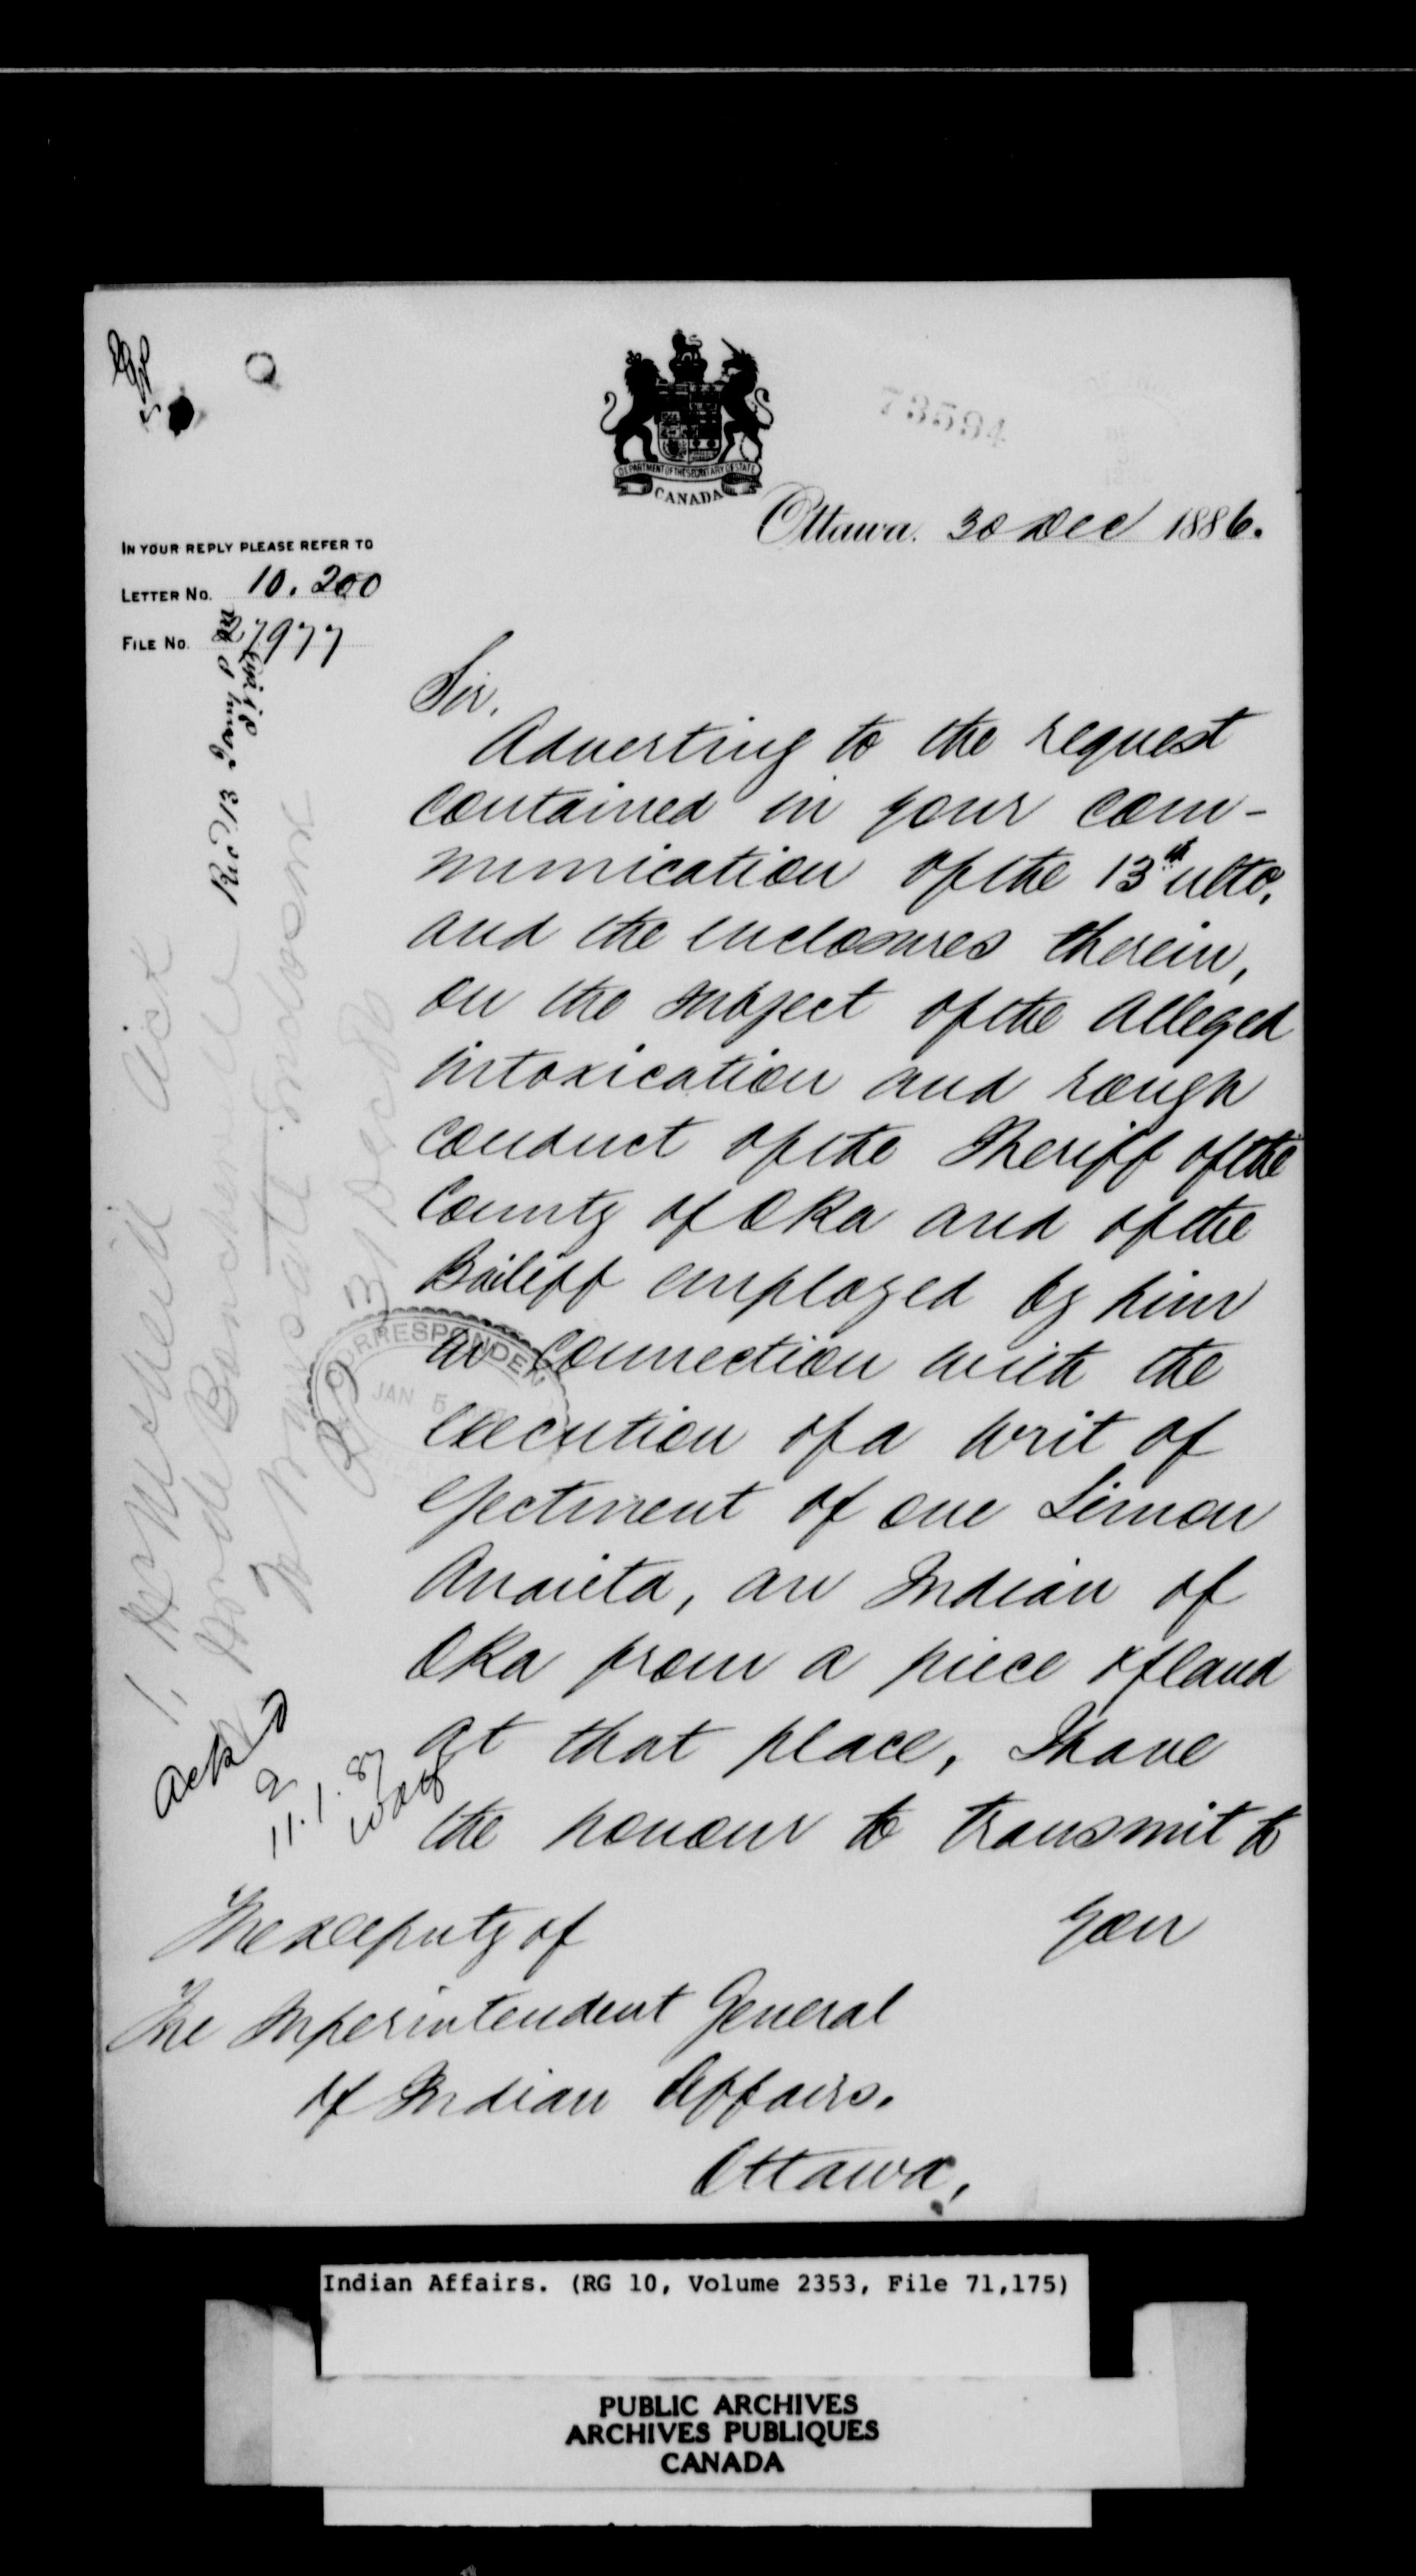 73594
DEPARTMENT OF THE SECRETARY OF STATE
CANADA
Ottawa. 30 Dec 1886.
IN YOUR REPLY PLEASE REFER TO
LETTER No. 10.200
FILE No. 27977
Sir,
Adverting to the request
contained in your com-
munication of the 13th ulto,
and the enclosures therein,
on the subject of the alleged
intoxication and rough
conduct of the Sheriff of the
County of Oka and of the
Bailiff employed by him
in connection with the
execution of a writ of
ejectment of one Simon
Anaieta, an Indian of
Oka from a piece of land
at that place, I have
the honour to transmit to
you
The Deputy of
The Superintendent General
of Indian Affairs.
Ottawa,
Rec'd 13
CORRESPONDEN
JAN 5
31 Dec 86
Ack'd
11.1.87
Indian Affairs. (RG 10, Volume 2353, File 71,175)
PUBLIC ARCHIVES
ARCHIVES PUBLIQUES
CANADA